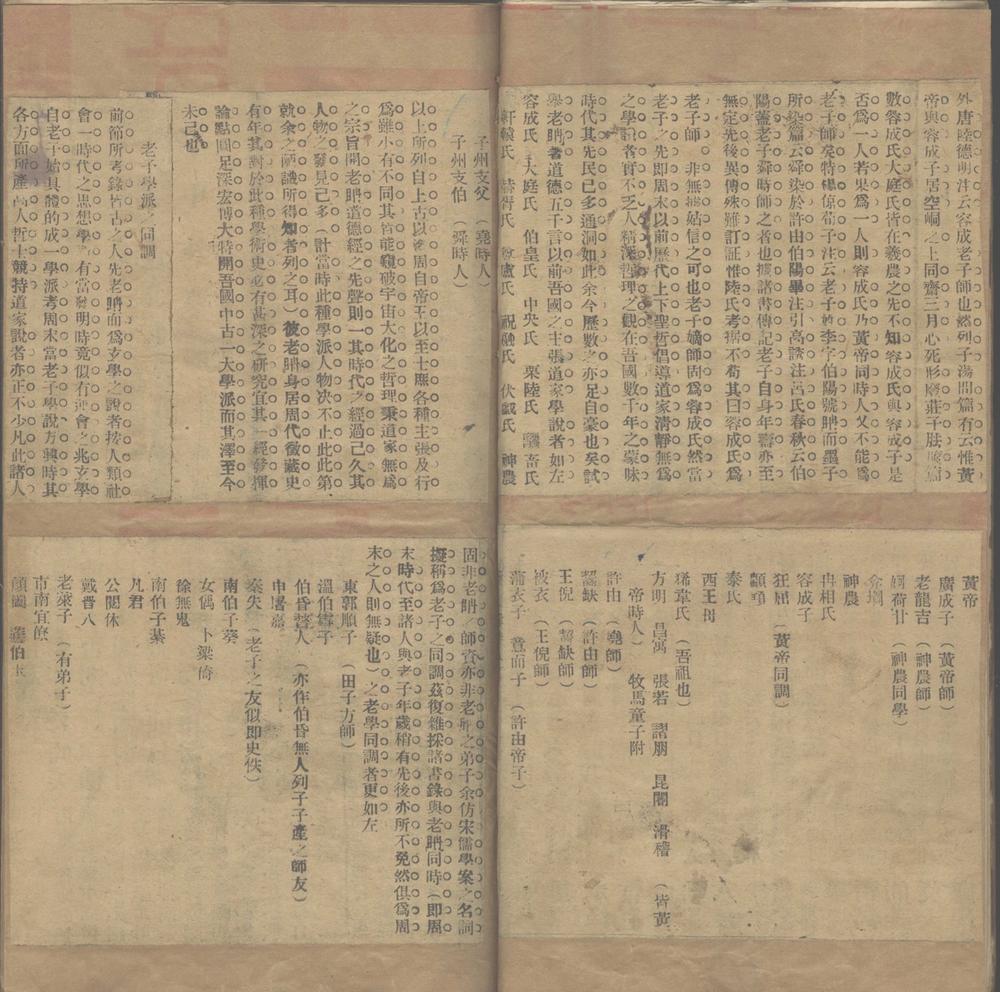 外唐陸德明注云容成老子師也然列子湯問篇有云惟黃
帝與容成子居空峒之上同齋三月心死形廢莊子胠篋篇
數容成氏大庭氏皆在羲農之先不知容成氏與容成子是
否爲一人若果爲一人則容成氏乃黃帝同時人又不能爲
老子師矣特楊倞荀子注云老子姓李字伯陽號聃而墨子
所染篇云舜染於許由伯陽畢注引高誘注呂氏春秋云伯
陽蓋老子舜時師之者也據諸書傳記老子自身年壽亦至
無定先後異傳殊難訂証惟陸氏考據不苟其曰容成氏爲
老子師 非無據姑信之可也老子嫡師固爲容成氏然當
老子之先即周末以前歷代上下聖哲倡導道家清靜無爲
之學說者實不乏人精深哲理之觀在吾國數千年之蒙昧
時代其先民已多通洞如此余今歷數之亦足自豪也矣試
舉老聃著道德五千言以前吾國之主張道家學說者如左
容成氏 大庭氏 伯皇氏 中央氏 栗陸氏 驪畜氏
軒轅氏 赫胥氏 尊盧氏 祝融氏 伏戲氏 神農
黃帝
廣成子 (黃帝師)
老龍吉 (神農師)
婀荷甘 (神農同學)
弇堈
神農
冉相氏
容成子
狂屈 (黃帝同調)
顓頊
泰氏
西王母
狶韋氏 (吾祖也)
方明 昌寓 張若 謵朋 昆閽 滑稽 (皆黃
帝時人) 牧馬童子附
許由 (堯師)
齧缺 (許由師)
王倪 (齧缺師)
被衣 (王倪師)
蒲衣子 善而子 (許由帝子)
子州支父 (堯時人)
子州支伯 (舜時人)
以上所列自上古以迄周自帝王以至士庶各種主張及行
爲雖小有不同其皆能窺破宇宙大化之哲理秉道家無爲
之宗旨開老聃道德經之先聲則一其時代之經過己久其
人物之發見己多(計當時此種學派人物决不止此此第
就余之嗣識所得知者列之耳)彼老聃身居周代徵藏史
有年其對於此種學術史必有甚深之研究宜其一經發揮
論點固足深宏博大特開吾國中古一大學派而其澤至今
未己也
老子學派之同調
前節所考錄皆古之人先老聃而爲玄學之說者按人類社
會一時代之思想學 有當發明時竟似有運會之兆玄學
自老子始具體的成一學派考周末當老子學說方興時其
各方面所產高人哲士競持道家說者亦正不少凡此諸人
固非老聃ノ師資亦非老聃之弟子余仿宋儒學案之名詞
擬稱爲老子之同調茲復雜採諸書錄與老聃同時(即周
末時代至諸人與老子年歲稍有先後亦所不免然俱爲周
末之人則無疑也)之老學同調者更如左
東郭順子 (田子方師)
溫伯雪子
伯昏瞀人 (亦作伯昏無人列子子產之師友)
申屠嘉
秦失 (老子之友似即史佚)
南伯子葵
女偊 卜梁倚
徐無鬼
南伯子綦
凡君
公閱休
戴晋人
老萊子 (有弟子)
市南宜僚
顏闔 蘧伯玉